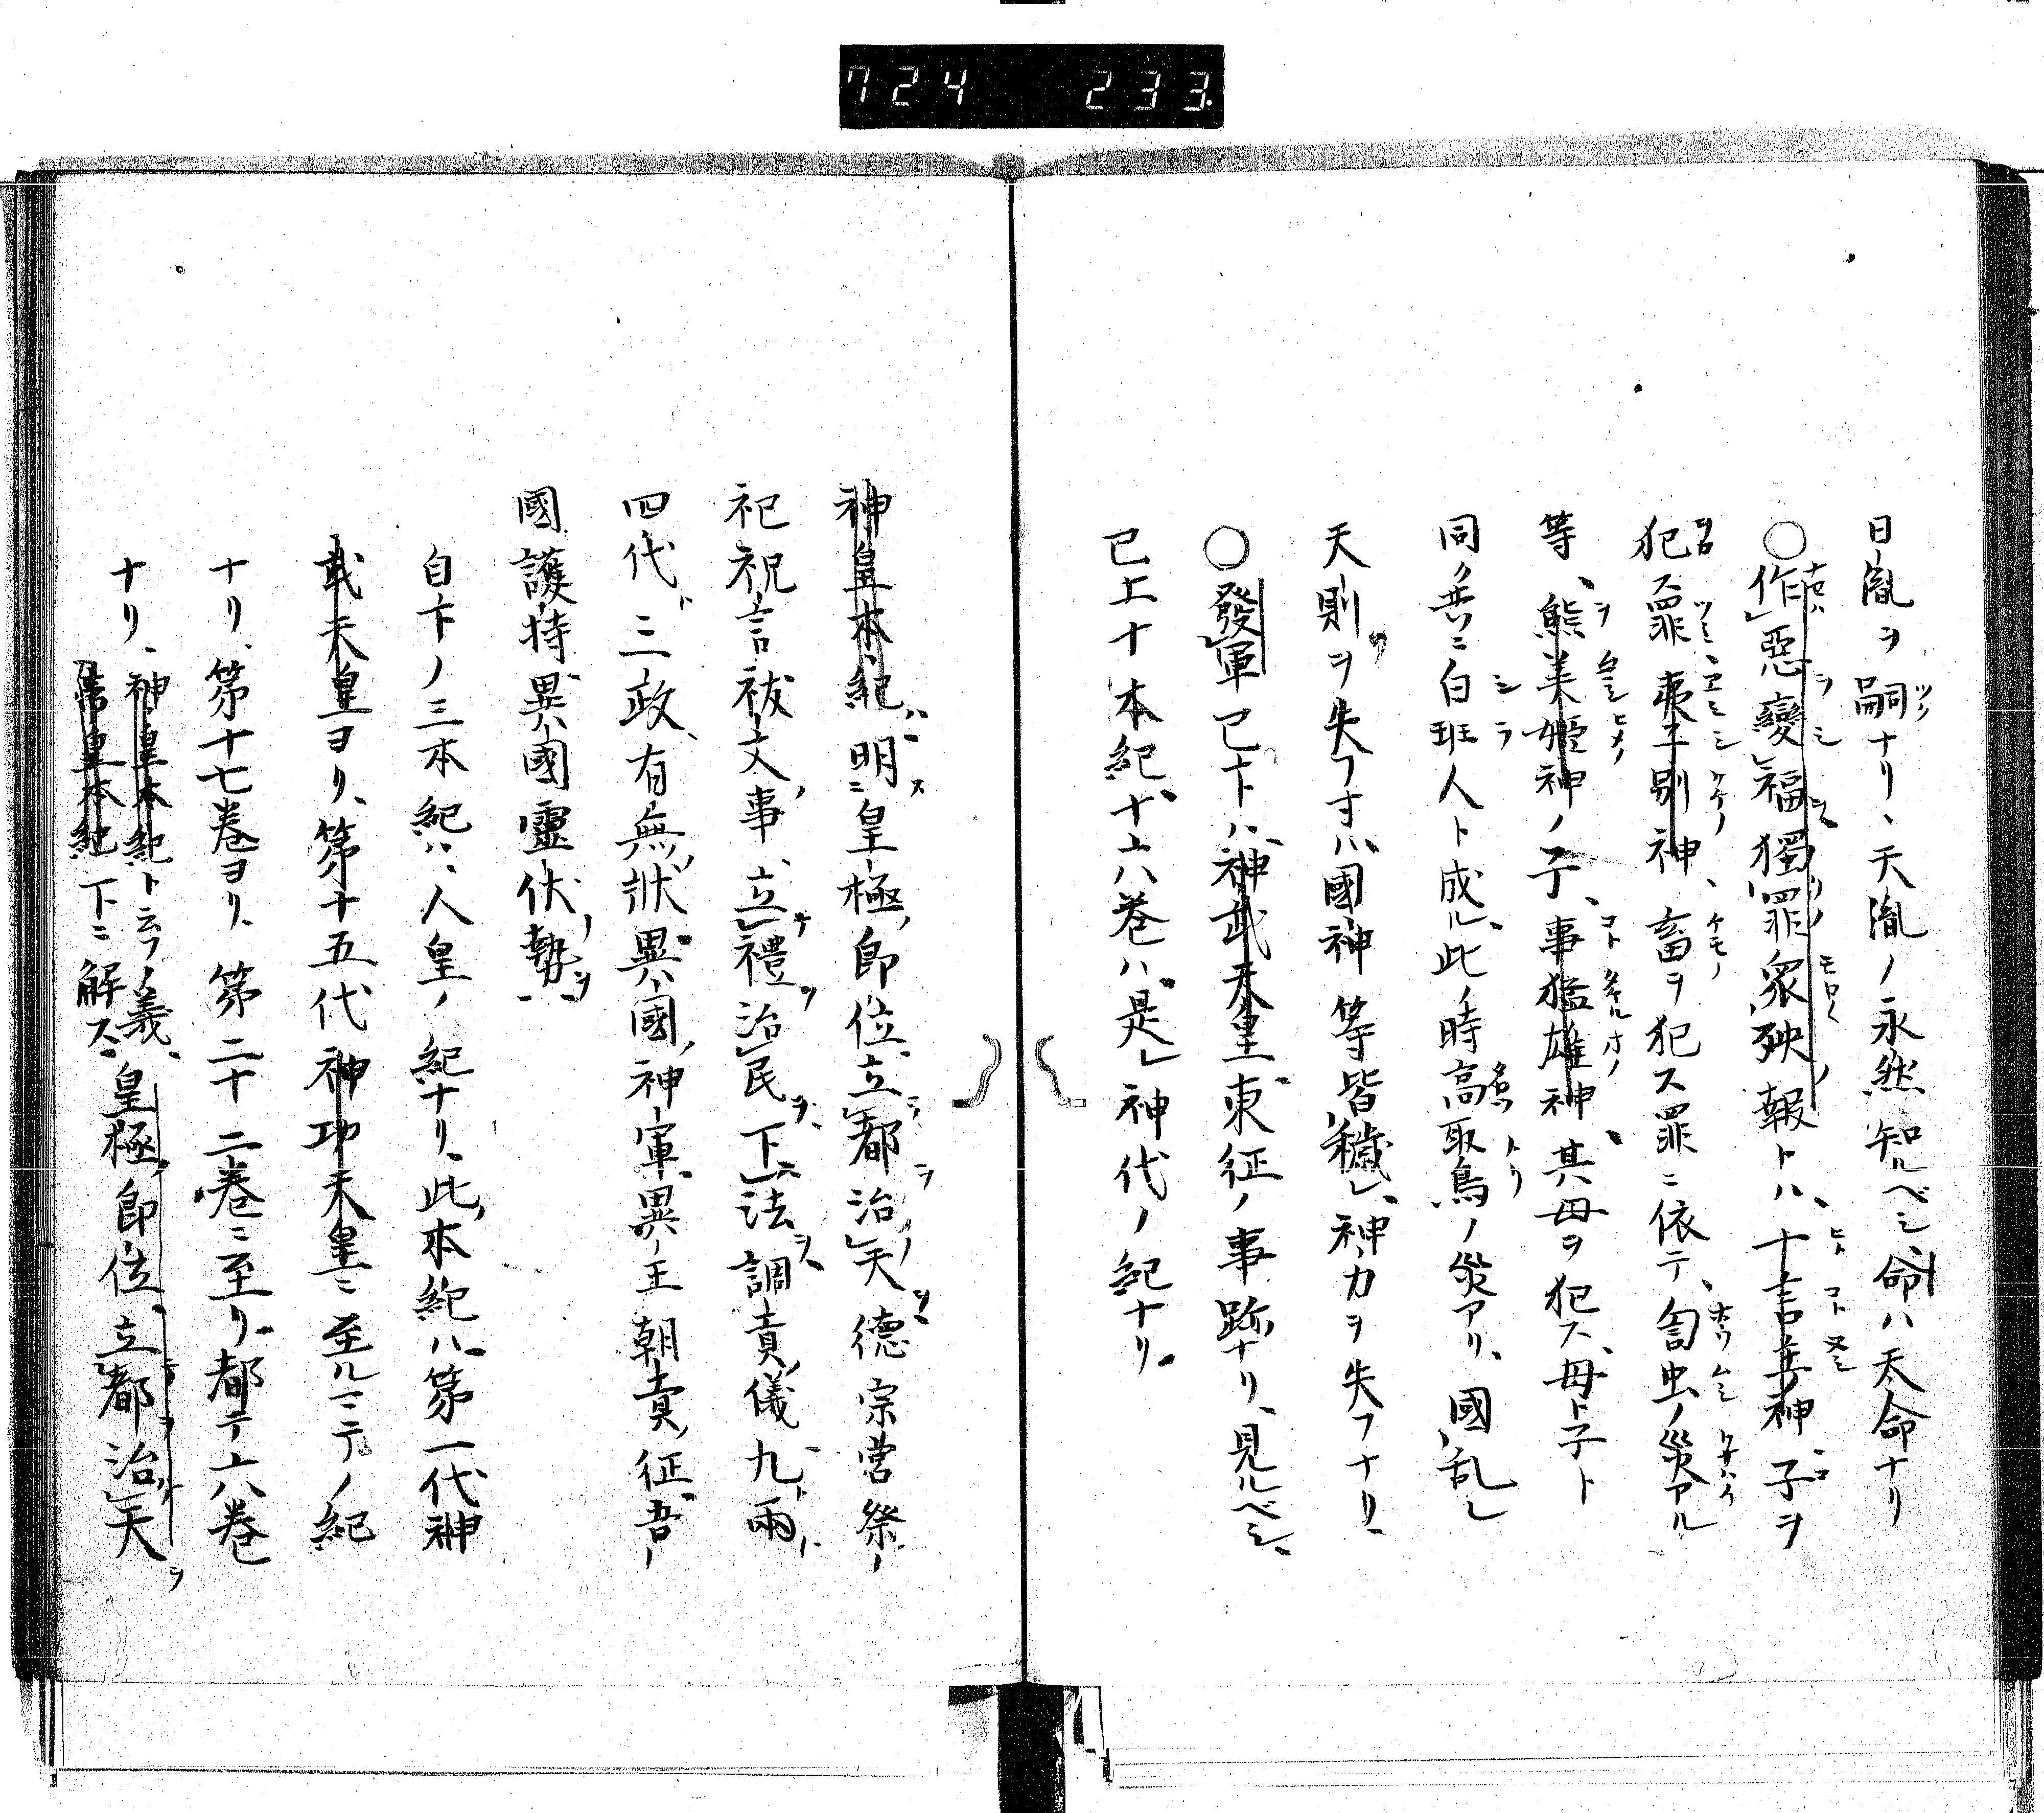 724 233
日ノ胤ヲ嗣ナリ、天胤ノ永然知ルベシ、命ハ太命ナリ
○作惡變福獨罪衆殃報トハ、十言玄神子ヲ
犯ス罪、夷子別神、畜ヲ犯ス罪ニ依テ、匐虫ノ災アル
等、熊美姫神ノ子、事猛雄神、其母ヲ犯ス、母ト子ト
同ク共ニ白班人ト成ル、此ノ時高取鳥ノ災アリ、國乱レ
天則ヲ失フ寸ハ、國神等皆穢レ、神力ヲ失フナリ、
○發軍已下ハ、神武天皇東征ノ事跡ナリ、見ルベシ、
已上十本紀、十六卷ハ是神代ノ紀ナリ。
神皇本紀ハ、明ニス皇極ノ即位立都治天德宗営祭ノ
祀祝言祓文事、立禮治民下法調貢儀九ト兩
四代ト三政有無狀、異國神軍異王朝貢、征吾ノ
國護持異國靈伏勢ヲ
自下ノ三本紀ハ、人皇ノ紀ナリ、此本紀ハ、第一代神
武天皇ヨリ、第十五代神功天皇ニ至ルマテノ紀
ナリ、第十七卷ヨリ、第二十二卷ニ至リ、都テ六卷
ナリ、神皇本紀ト云フノ義、皇極即位立都治天ヲ
帝皇本紀下ニ解ス、